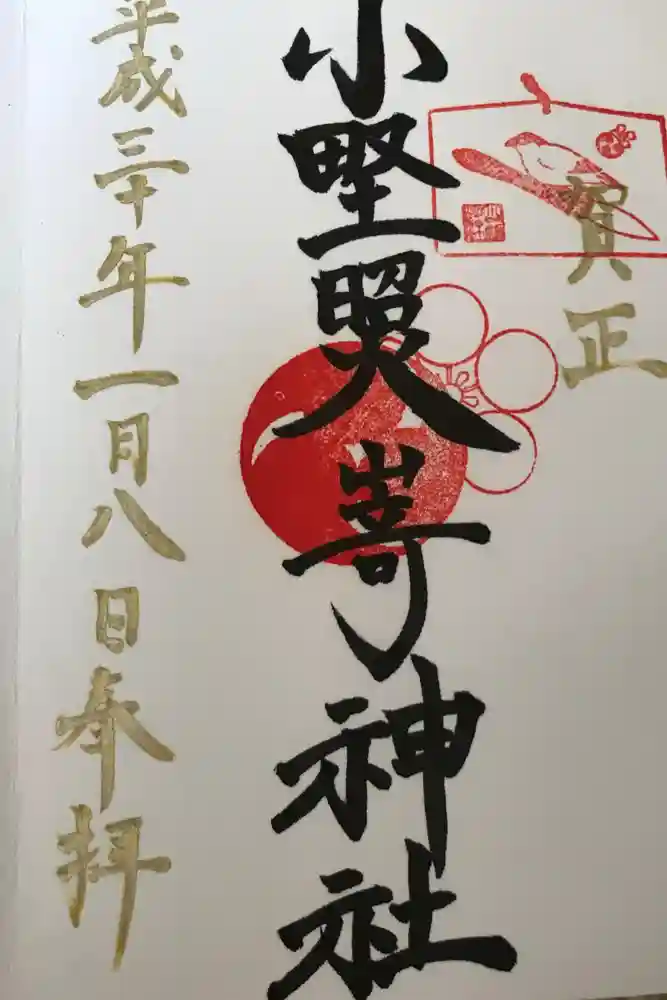 賀正
小野照嵜神社
平成三十年一月八日奉拝